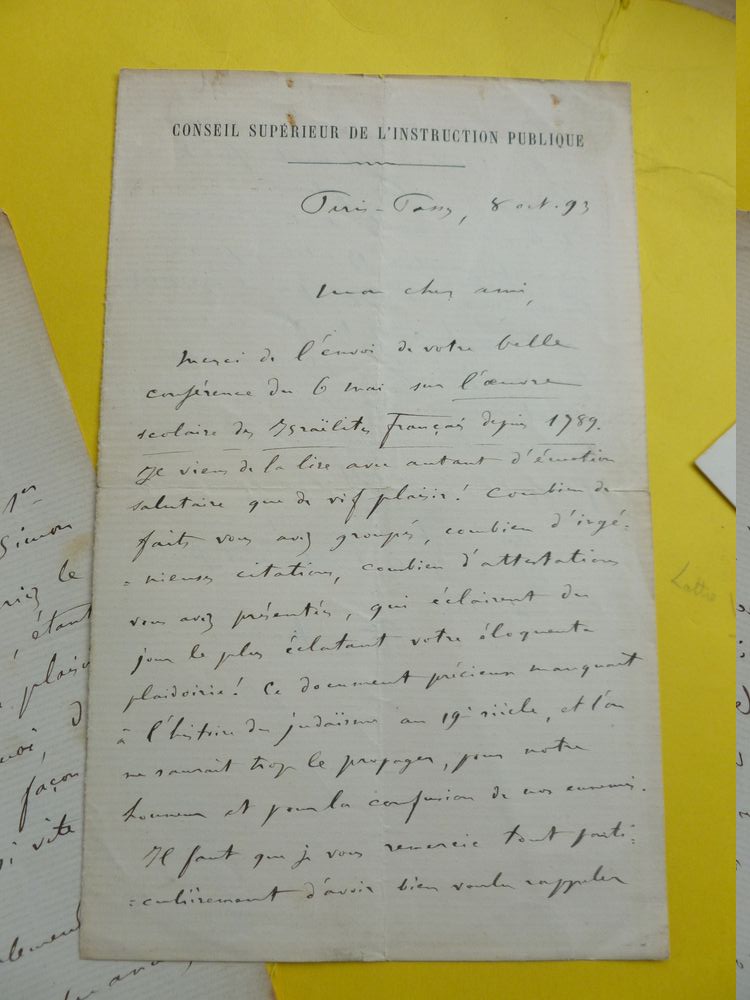 CONSEIL SUPÉRIEUR DE L'INSTRUCTION PUBLIQUE
Paris-Passy, 8 oct. 93
Mon cher ami,
Merci de l'envoi de votre belle
conférence du 6 mai sur l'œuvre
scolaire des Israëlites français depuis 1789.
Je viens de la lire avec autant d'émotion
salutaire que de vif plaisir! Combien de
faits vous avez groupés, combien d'ingé-
-nieuses citations, combien d'attestations
vous avez présentées, qui éclairent du
jour le plus éclatant votre éloquente
plaidoirie! Ce document précieux manquait
à l'histoire du judaïsme au 19e siècle, et l'on
ne saurait trop le propager, pour notre
honneur et pour la confusion de nos ennemis.
Il faut que je vous remercie tout parti-
-culièrement d'avoir bien voulu rappeler
1er
Simon
le
étant
plaisir
façon
vite
Lettre